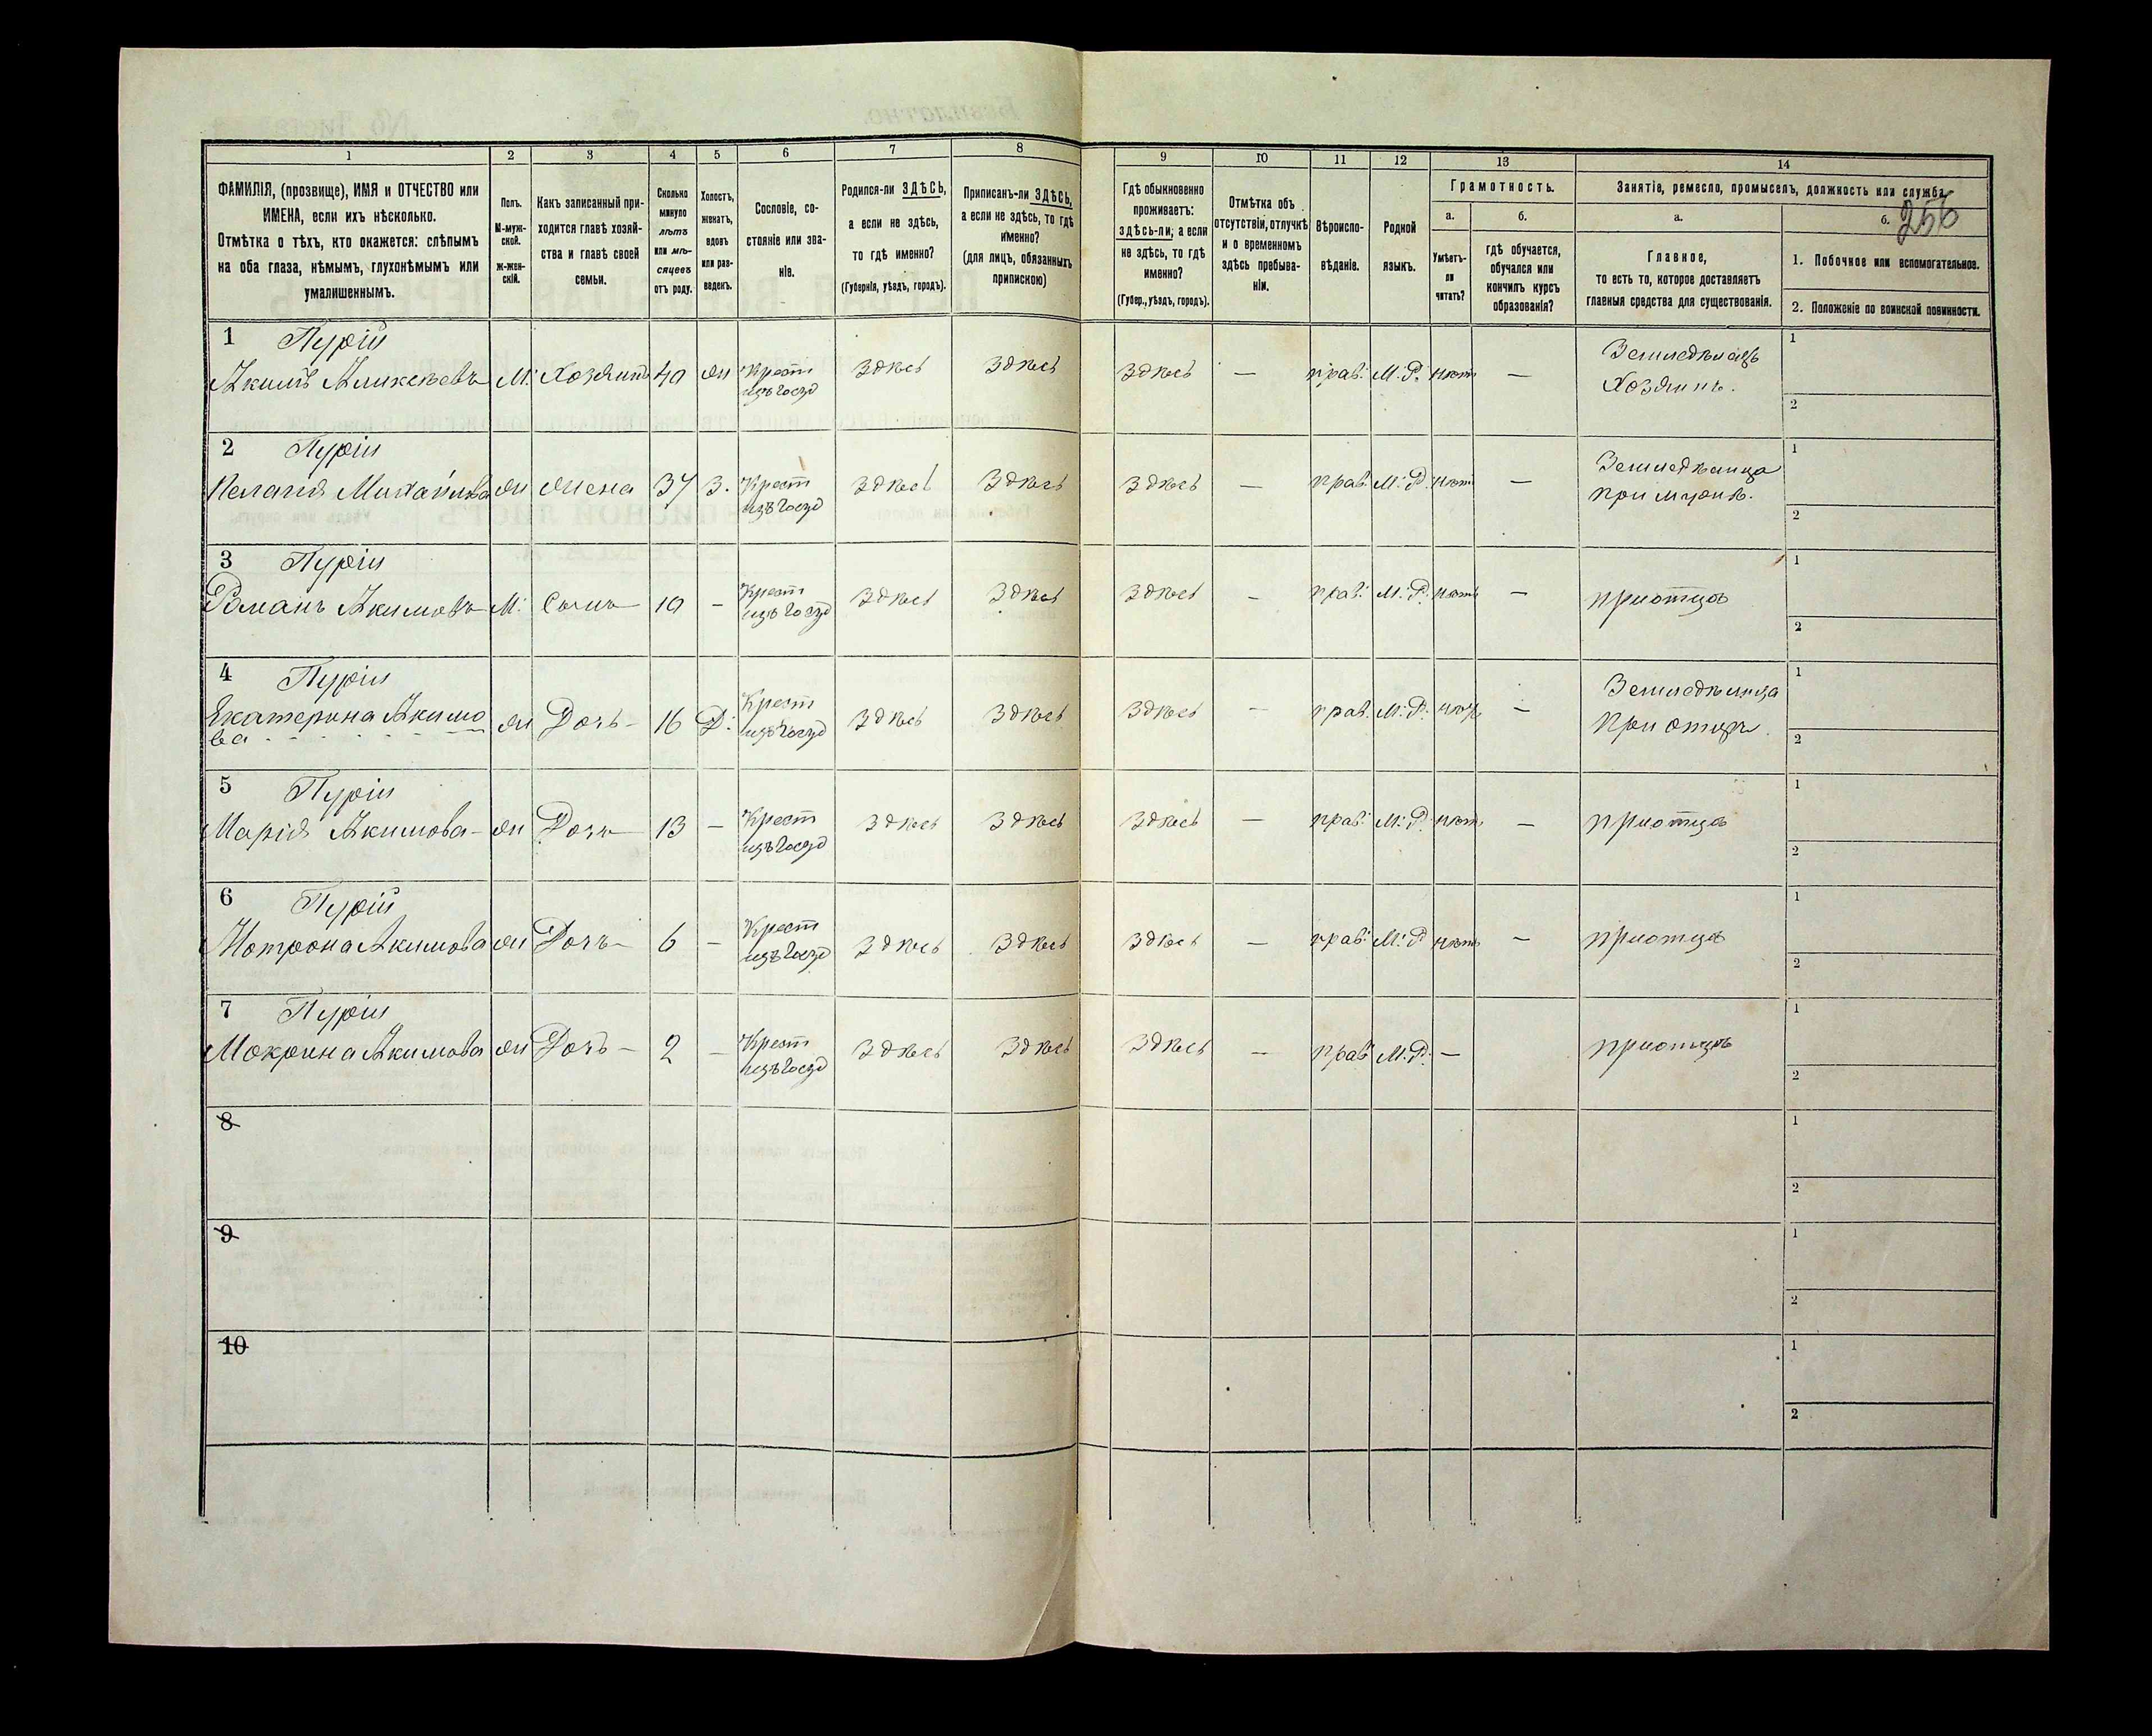 1 2 3 4 5 6 7 8 9 10 11 12 13 14
ФАМИЛІЯ, (прозвище), ИМЯ и ОТЧЕСТВО или
ИМЕНА, если ихъ нѣсколько.
Отмѣтка о тѣхъ, кто окажется: слѣпымъ
на оба глаза, нѣмымъ, глухонѣмымъ или
умалишеннымъ.
Полъ.
М-муж-
ской.
ж-жен-
скій.
Какъ записанный при-
ходится главѣ хозяй-
ства и главѣ своей
семьи.
Сколько
минуло
лѣтъ
или мѣ-
сяцевъ
отъ роду.
Холостъ,
женатъ,
вдовъ
или раз-
веденъ.
Сословіе, со-
стояніе или зва-
ніе.
Родился-ли ЗДѢСЬ,
а если не здѣсь,
то гдѣ именно?
(Губернія, уѣздъ, городъ).
Приписанъ-ли ЗДѢСЬ,
а если не здѣсь, то гдѣ
именно?
(для лицъ, обязанныхъ
припискою)
Гдѣ обыкновенно
проживаетъ:
здѣсь-ли; а если
не здѣсь, то гдѣ
именно?
(Губер., уѣздъ, городъ).
Отмѣтка объ
отсутствіи, отлучкѣ
и о временномъ
здѣсь пребыва-
ніи.
Вѣроиспо-
вѣданіе.
Родной
языкъ.
Грамотность.
а. б.
Умѣетъ-
ли
читать?
гдѣ обучается,
обучался или
кончилъ курсъ
образованія?
Занятіе, ремесло, промыселъ, должность или служба.
а. б. 256
Главное,
то есть то, которое доставляетъ
главныя средства для существованія.
1. Побочное или вспомогательное.
2. Положеніе по воинской повинности.
1 Пурій
Акимъ Аликсѣевъ М. Хозяинъ 40 Ж Крест Здѣсь Здѣсь Здѣсь — прав. М. Р. нѣтъ — Земледѣлецъ 1
изъ госуд Хозяинъ. 2
2 Пурій
Пелагія Михайлова Ж Жена 37 З. Крест Здѣсь Здѣсь Здѣсь — прав. М. Р. нѣтъ — Земледѣлица 1
изъ госуд при мужѣ. 2
3 Пурій
Романъ Акимовъ М. Сынъ 10 — Крест Здѣсь Здѣсь Здѣсь — прав. М. Р. нѣтъ — при отцѣ 1
изъ госуд 2
4 Пурій
Екатерина Акимо Ж Дочь 16 Д. Крест Здѣсь Здѣсь Здѣсь — прав. М. Р. нѣтъ — Земледѣлица 1
ва изъ госуд при отцѣ 2
5 Пурій
Марія Акимова Ж Дочь 13 — Крест Здѣсь Здѣсь Здѣсь — прав. М. Р. нѣтъ — при отцѣ 1
изъ госуд 2
6 Пурій
Мотрона Акимова Ж Дочь 6 — Крест Здѣсь Здѣсь Здѣсь — прав. М. Р. нѣтъ — при отцѣ 1
изъ госуд 2
7 Пурій
Мокрина Акимова Ж Дочь 2 — Крест Здѣсь Здѣсь Здѣсь — прав М. Р. — при отцѣ 1
изъ госуд 2
8 1
2
9 1
2
10 1
2